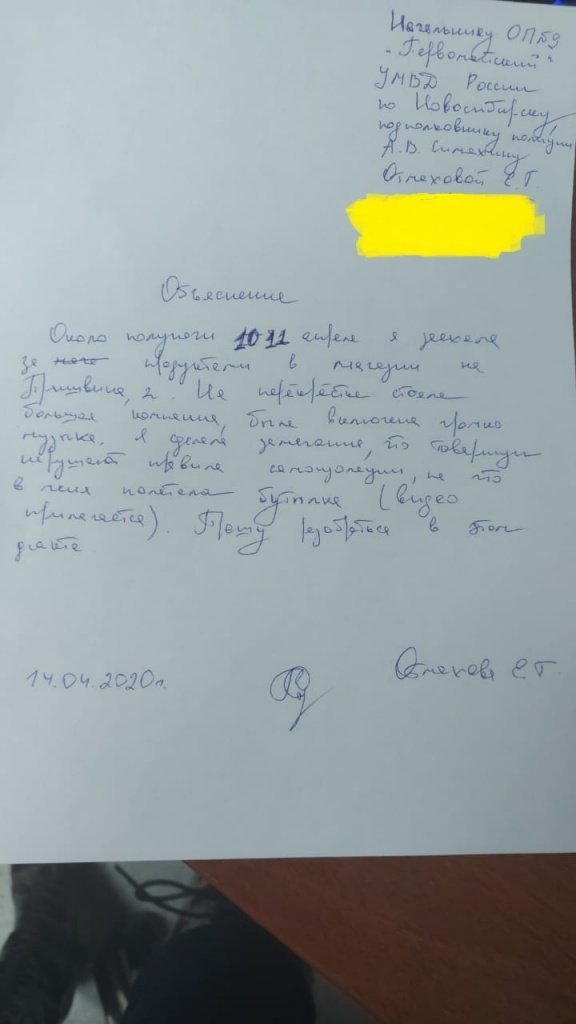 Начальнику ОП №9
"Первомайский"
УМВД России
по Новосибирску,
подполковнику полиции
А.В.
Е.Г.
Объяснение
Около полуночи 11 апреля я заехала
за продуктами в магазин на
Пришвина, 2. На перекрёстке стояла
большая компания, была включена громко
музыка. Я сделала замечание, что товарищи
нарушают правила самоизоляции, на что
в меня полетела бутылка (видео
прилагается). Прошу разобраться в этом
факте
14.04.2020г.
Е.Г.